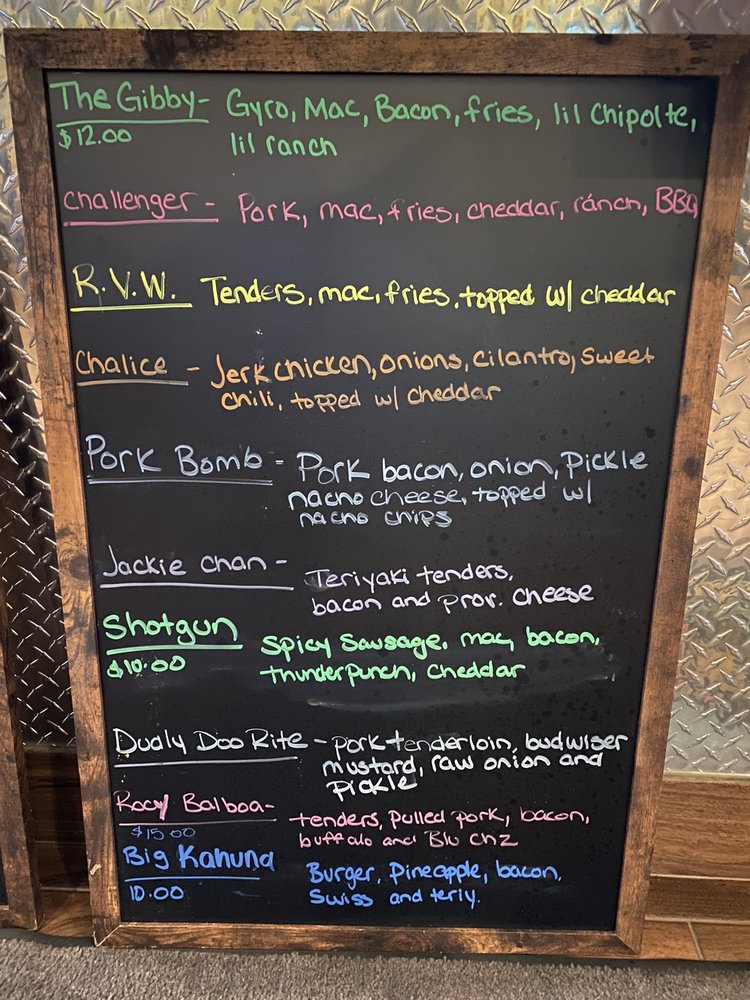 The Gibby- Gyro, Mac, Bacon, fries, lil Chipolte,
$12.00 lil ranch
Challenger - Pork, mac, fries, cheddar, ranch, BBQ
R.V.W. Tenders, mac, fries, topped w/ cheddar
Chalice - Jerk chicken, onions, cilantro, sweet
chili, topped w/ cheddar
Pork Bomb - Pork bacon, onion, Pickle
nacho cheese, topped w/
nacho chips
Jackie chan - Teriyaki tenders,
bacon and prov. cheese
Shotgun Spicy Sausage, mac, bacon,
$10.00 thunderpunch, cheddar
Dualy Doo Rite - pork tenderloin, budwiser
mustard, raw onion and
pickle
Rocy Balboa- tenders, pulled pork, bacon,
$15.00 buffalo and Blu chz
Big Kahuna Burger, Pineapple, bacon,
10.00 Swiss and teriy.